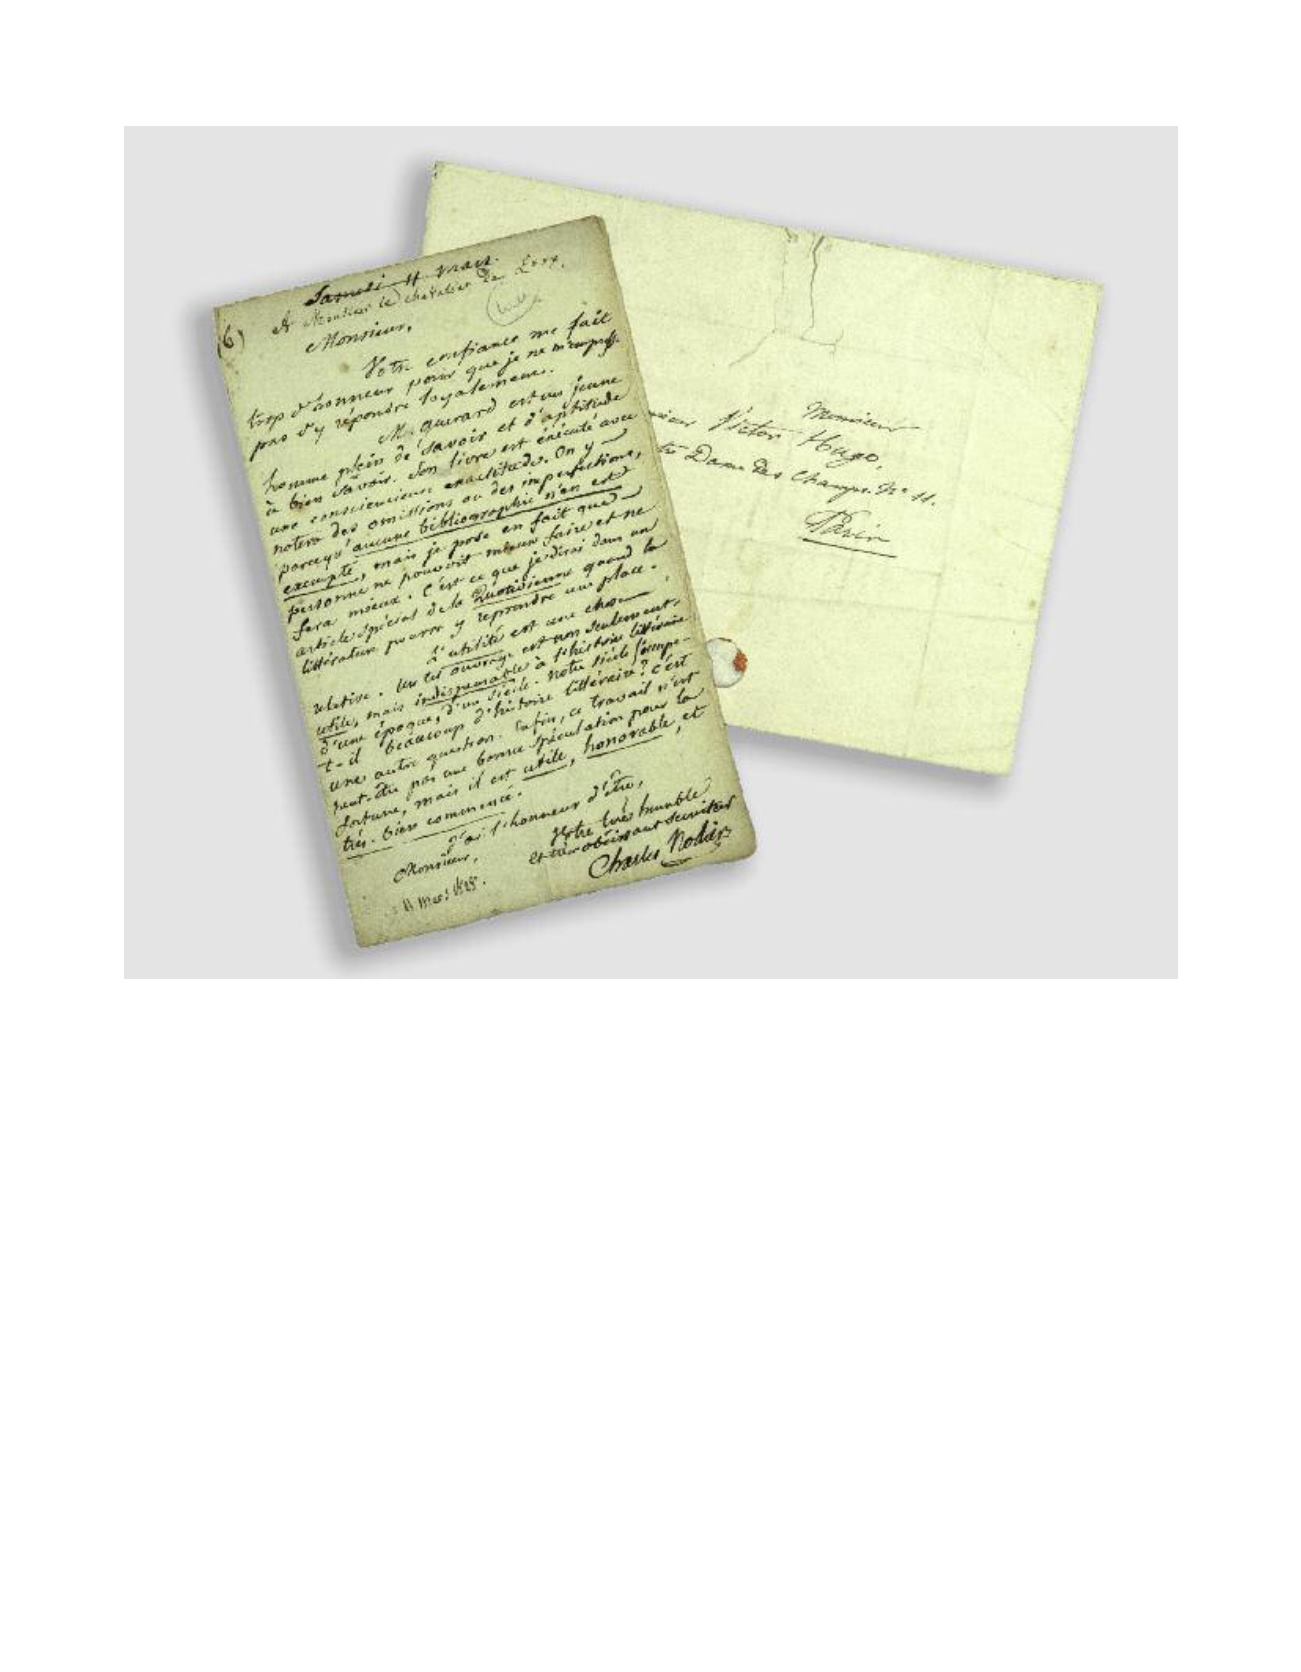 (6)
Samedi 11 mars.
A Monsieur le chevalier de
Monsieur,
Votre confiance me fait
trop d'honneur pour que je ne m'empresse
pas d'y répondre loyalement.
M. Querard est un jeune
homme plein de savoir et d'aptitude
à bien savoir. Son livre est éxécuté avec
une consciencieuse exactitude. On y
notera des omissions ou des imperfections,
parcequ'aucune bibliographie n'en est
exempte, mais je pose en fait que
personne ne pouvoit mieux faire et ne
fera mieux. C'est ce que je dirai dans un
article spécial de la Quotidienne quand la
littérature pourra y reprendre une place.
L'utilité est une chose
relative. Un tel ouvrage est non seulement
utile, mais indispensable à l'histoire littéraire
d'une époque, d'un siècle. Notre siècle s'occupe-
t-il beaucoup d'histoire littéraire? c'est
une autre question. Enfin, ce travail n'est
peut-être pas une bonne spéculation pour la
fortune, mais il est utile, honorable, et
très-bien commencé.
J'ai l'honneur d'être,
Monsieur,
Votre très humble
et très obéissant serviteur
Charles Nodier
11 Mars 1828.
Monsieur
Victor Hugo,
Dame des Champs. N° 11.
Paris